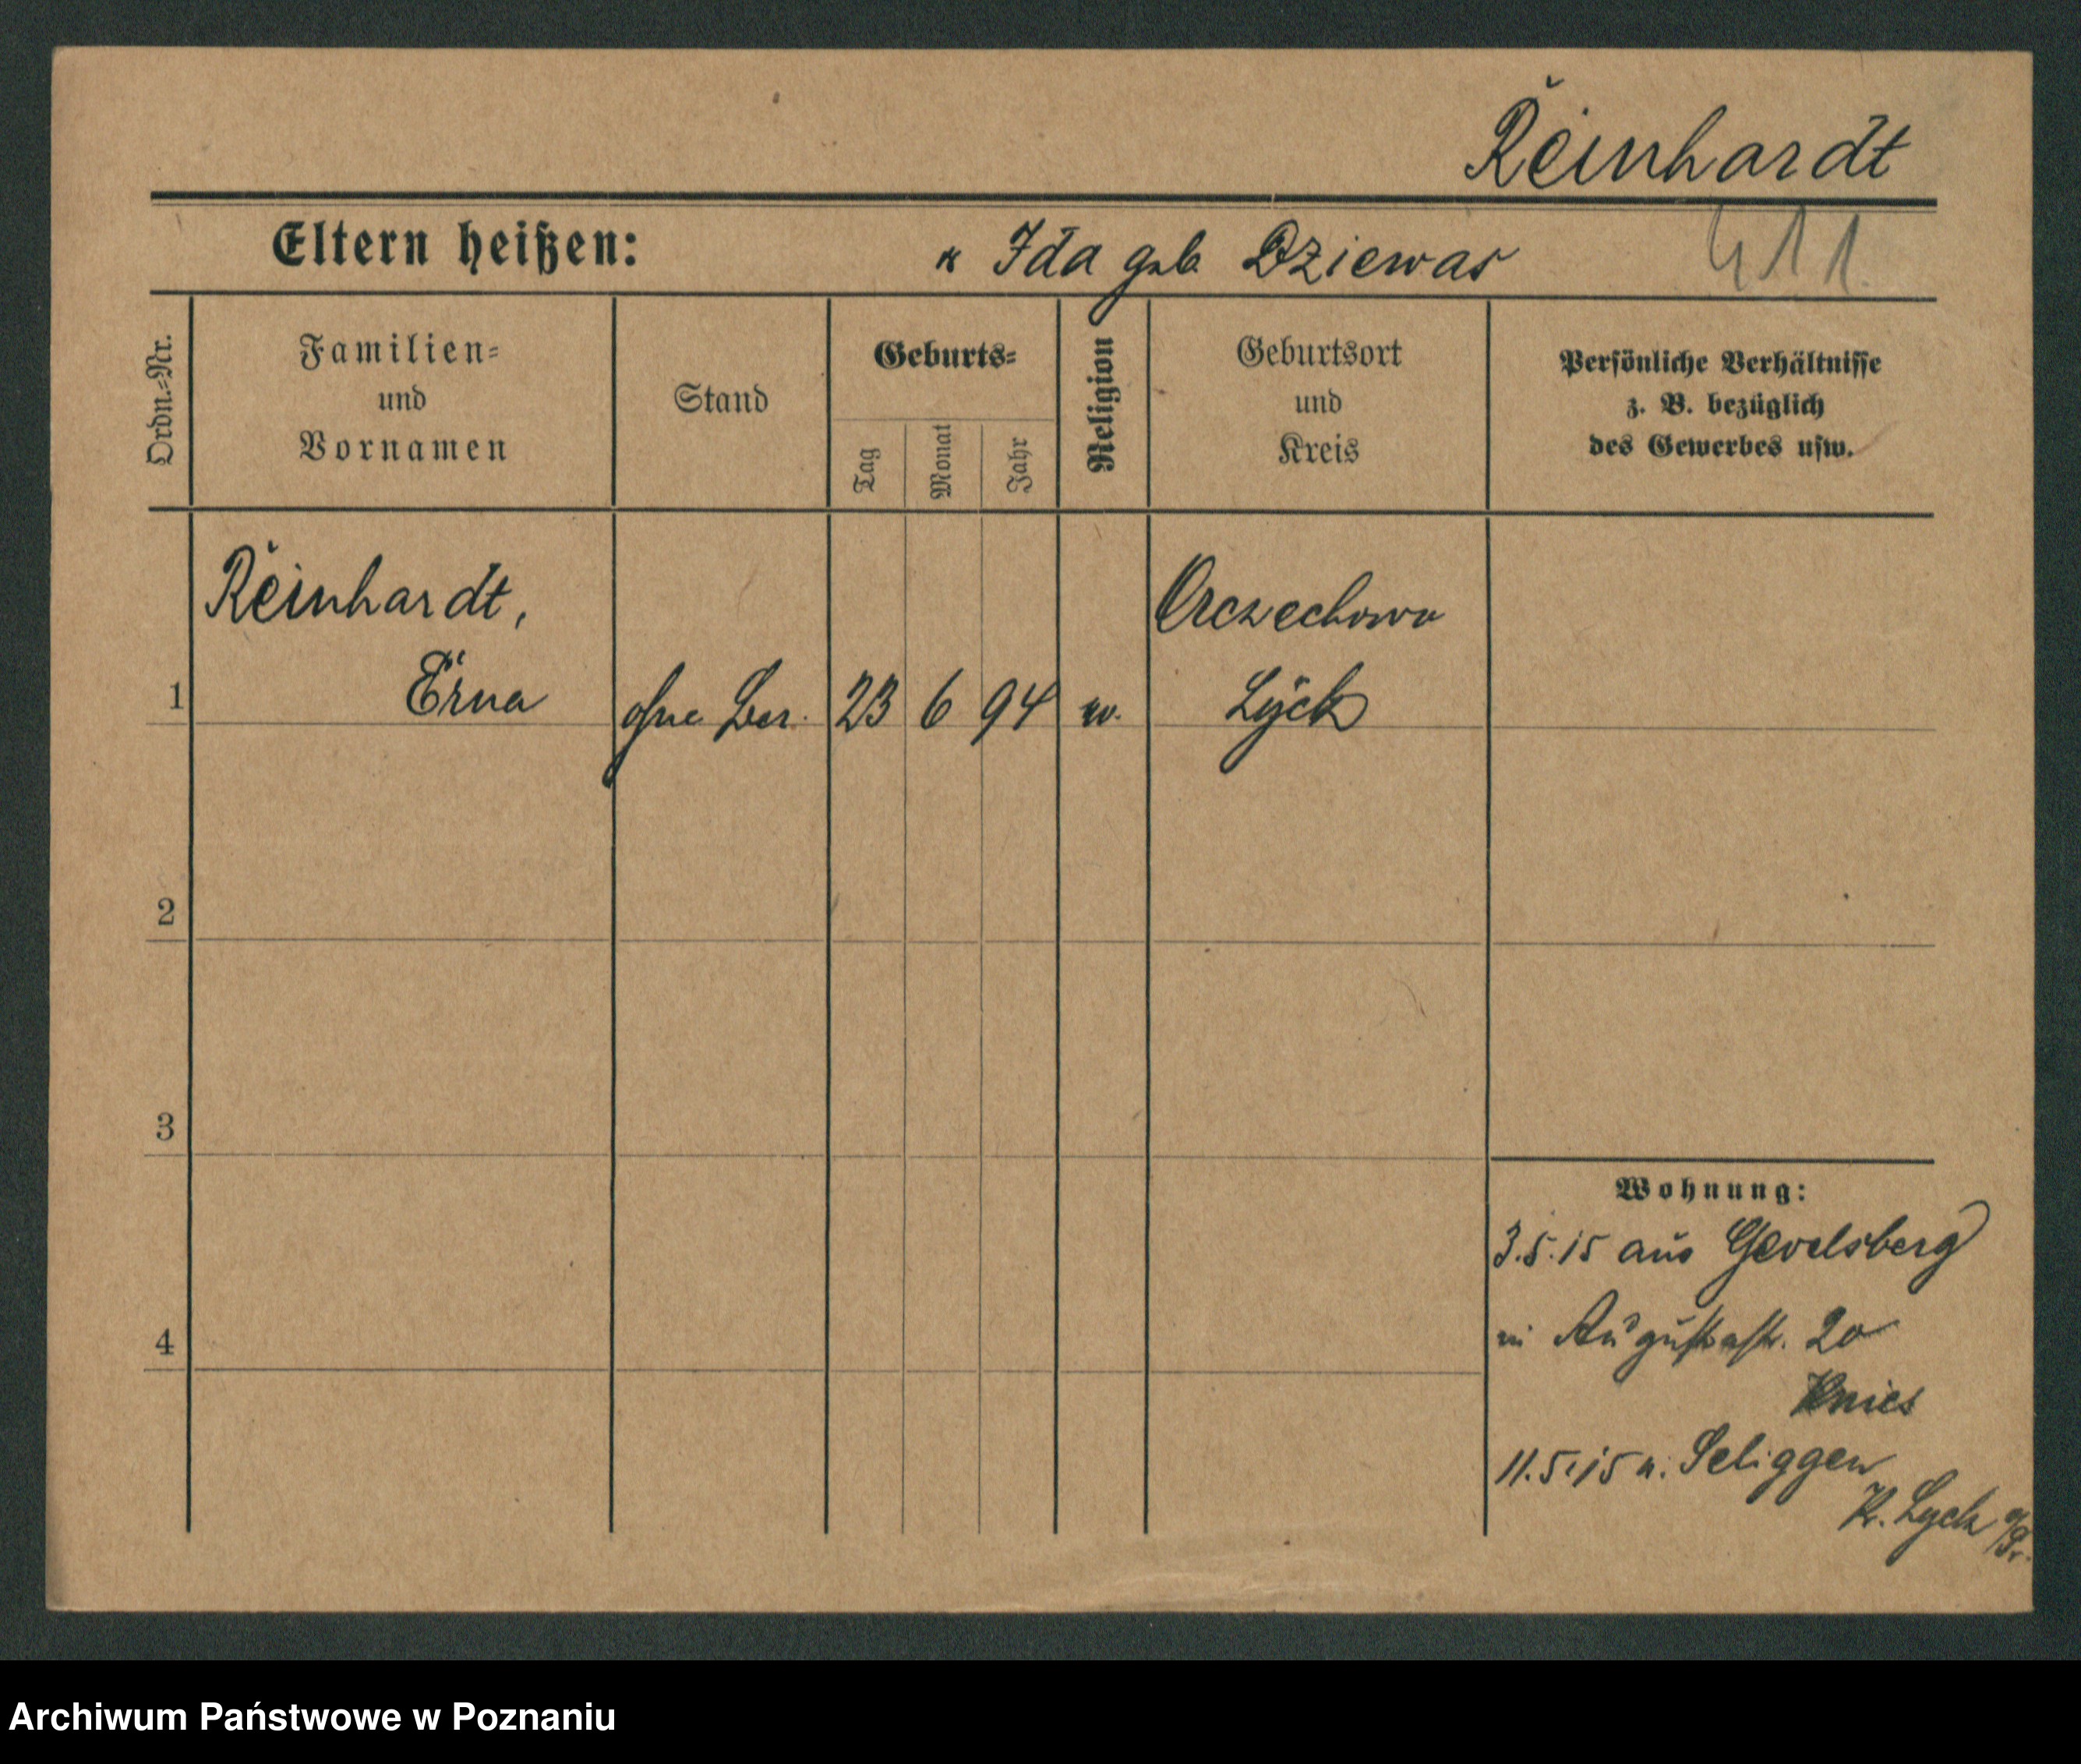 Reinhardt
Eltern heißen: " Ida geb Dziewas 411.
Ordn.=Nr.
Familien=
und
Vornamen
Stand
Geburts=
Tag
Monat
Jahr
Religion
Geburtsort
und
Kreis
Persönliche Verhältnisse
z. B. bezüglich
des Gewerbes usw.
Reinhardt, Orczechowo
1 Erna ohne Ber. 23 6 94 ev. Lyck
2
3
Wohnung:
3.5.15 aus Gevelsberg
in Augustastr. 20
4
Knies
11.5.15 n. Seliggen
Kr. Lyck o/Pr.
Archiwum Państwowe w Poznaniu